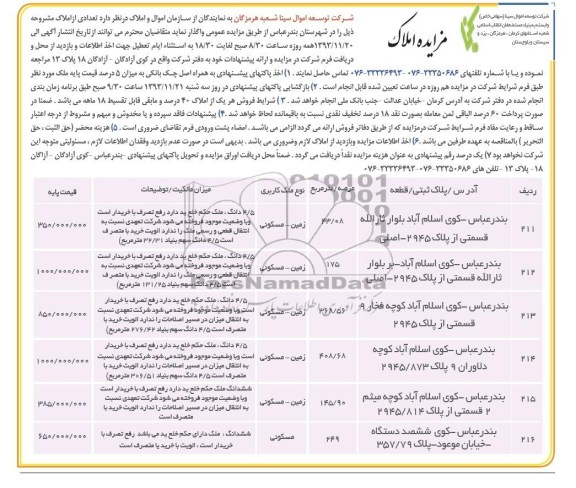 شرکت توسعه اموال سینا (سهامی خاص)
وابسته به بنیاد مستضعفان انقلاب اسلامی
شعبه استانهای کرمان - هرمزگان - یزد و
سیستان و بلوچستان
مزایده املاک
شرکت توسعه اموال سینا شعبه هرمزگان به نمایندگی از سازمان اموال و املاک در نظر دارد تعدادی از املاک مشروحه
ذیل را در شهرستان بندرعباس از طریق مزایده عمومی واگذار نماید متقاضیان محترم می توانند از تاریخ انتشار آگهی الی
۱۳۹۳/۱۱/۲۰ همه روزه ساعت ۸/۳۰ صبح لغایت ۱۸/۳۰ به استثناء ایام تعطیل جهت اخذ اطلاعات و بازدید از محل و
دریافت فرم شرکت در مزایده و ارائه پیشنهادات خود به دفتر شرکت واقع در کوی آزادگان - آزادگان ۱۸ پلاک ۱۳ مراجعه
نموده و یا با شماره تلفنهای ۳۳۳۵۰۶۸۶-۰۷۶ -۳۳۳۳۶۴۹۳-۰۷۶ تماس حاصل نمایند . ۱) اخذ پاکتهای پیشنهادی به همراه اصل چک بانکی به میزان ۵ درصد قیمت پایه ملک مورد نظر
طبق فرم شرایط شرکت در مزایده هم روزه در ساعت تعیین شده قابل انجام است . ۲) بازگشایی پاکتهای پیشنهادی در روز سه شنبه ۱۳۹۳/۱۱/۲۱ ساعت ۹/۳۰ صبح طبق برنامه زمان بندی
انجام شده در دفتر شرکت به آدرس کرمان -خیابان عدالت -جنب بانک ملی انجام خواهد شد . ۳) شرایط فروش هر یک از املاک ۴۰ درصد و مابقی قابل تقسیط ۱۸ ماهه می باشد . ضمنا در
صورت پرداخت ۶۰ درصد الباقی ثمن معامله بصورت نقد ۱۸ درصد تخفیف نقدی نسبت به باقیمانده لحاظ خواهد شد ۴) پیشنهادات فاقد سپرده و یا مخدوش و مبهم و مشروط از درجه اعتبار
ساقط و رعایت مفاد فرم شرایط شرکت در مزایده که از طریق دفاتر فروش ارائه می گردد الزامی می باشد . امضاء پشت ورودی فرم تقاضای ضروری است . ۵) هزینه محضر (حق الثبت ، حق
التحریر) بالمناصفه به عهده طرفین می باشد .۶) اخذ اطلاعات مزایده و بازدید از املاک لازم وضروری می باشد . بدیهی است در صورت عدم بازدید وفقدان اطلاعات لازم ، مسئولیتی متوجه این
شرکت نخواهد بود ۷) یک درصد رقم پیشنهادی به عنوان هزینه مزایده نقداً دریافت می گردد . ضمناً محل دریافت اوراق مزایده و تحویل پاکتهای پیشنهادی -بندرعباس -کوی آزادگان - آزادگان
۱۸- پلاک ۱۳ -تلفن های ۳۳۳۵۰۶۸۶-۰۷۶ -۳۳۳۳۶۴۹۳-۰۷۶
ردیف آدرس /پلاک ثبتی/قطعه عرصه /مترمربع نوع ملک کاربری میزان مالکیت /توضیحات قیمت پایه
۲۱۱ بندرعباس -کوی اسلام آباد بلوار ثارالله قسمتی از پلاک ۲۹۴۵-اصلی ۴۳/۰۸ زمین - مسکونی ۴/۵ دانگ ، ملک حکم خلع ید دارد رفع تصرف با خریدار است وبا وضعیت موجود فروخته می شود شرکت تعهدی نسبت به انتقال قطعی و رسمی ملک را ندارد الویت خرید با متصرف است ۴/۵ دانگ سهم بنیاد ۳۲/۳۱ مترمربع) ۳۵۰/۰۰۰/۰۰۰
۲۱۲ بندرعباس -کوی اسلام آباد -بر بلوار ثارالله قسمتی از پلاک ۲۹۴۵-اصلی ۱۷۵ زمین - مسکونی ۴/۵ دانگ ، ملک حکم خلع ید دارد رفع تصرف با خریدار است وبا وضعیت موجود فروخته می شود شرکت تعهدی نسبت به انتقال قطعی و رسمی ملک را ندارد الویت خرید با متصرف است ۴/۵ دانگ سهم بنیاد ۱۳۱/۲۵ مترمربع) ۱۰۰۰/۰۰۰/۰۰۰
۲۱۳ بندرعباس -کوی اسلام آباد کوچه فخار ۹ قسمتی از پلاک ۲۹۴۵ ۳۶۸/۵۶ زمین - مسکونی ۴/۵ دانگ ، ملک حکم خلع ید دارد رفع تصرف با خریدار است وبا وضعیت موجود فروخته می شود شرکت تعهدی نسبت به انتقال میزان در مسیر اصلاحات را ندارد الویت خرید با متصرف است ۴/۵ دانگ سهم بنیاد ۲۷۶/۴۲ مترمربع) ۸۵۰/۰۰۰/۰۰۰
۲۱۴ بندرعباس -کوی اسلام آباد کوچه دلاوران ۹ پلاک ۲۹۴۵/۸۷۳ ۴۰۸/۶۸ زمین - مسکونی ۴/۵ دانگ ، ملک حکم خلع ید دارد رفع تصرف با خریدار است وبا وضعیت موجود فروخته می شود شرکت تعهدی نسبت به انتقال میزان در مسیر اصلاحات را ندارد الویت خرید با متصرف است ۴/۵ دانگ سهم بنیاد ۳۰۶/۵۱ مترمربع) ۱۰۰۰/۰۰۰/۰۰۰
۲۱۵ بندرعباس -کوی اسلام آباد کوچه میثم ۲ قسمتی از پلاک ۲۹۴۵/۸۱۴ ۱۴۵/۹۰ زمین - مسکونی ششدانگ ملک حکم خلع ید دارد رفع تصرف با خریدار است وبا وضعیت موجود فروخته می شود شرکت تعهدی نسبت به انتقال میزان در مسیر اصلاحات را ندارد الویت خرید با متصرف است ۳۸۵/۰۰۰/۰۰۰
۲۱۶ بندرعباس -کوی ششصد دستگاه -خیابان موعود-پلاک ۳۵۷/۷۹ ۲۴۹ مسکونی ششدانگ ، ملک دارای حکم خلع ید می باشد رفع تصرف با خریدار است . الویت با خرید با متصرف است ۶۵۰/۰۰۰/۰۰۰
ParsNamadData